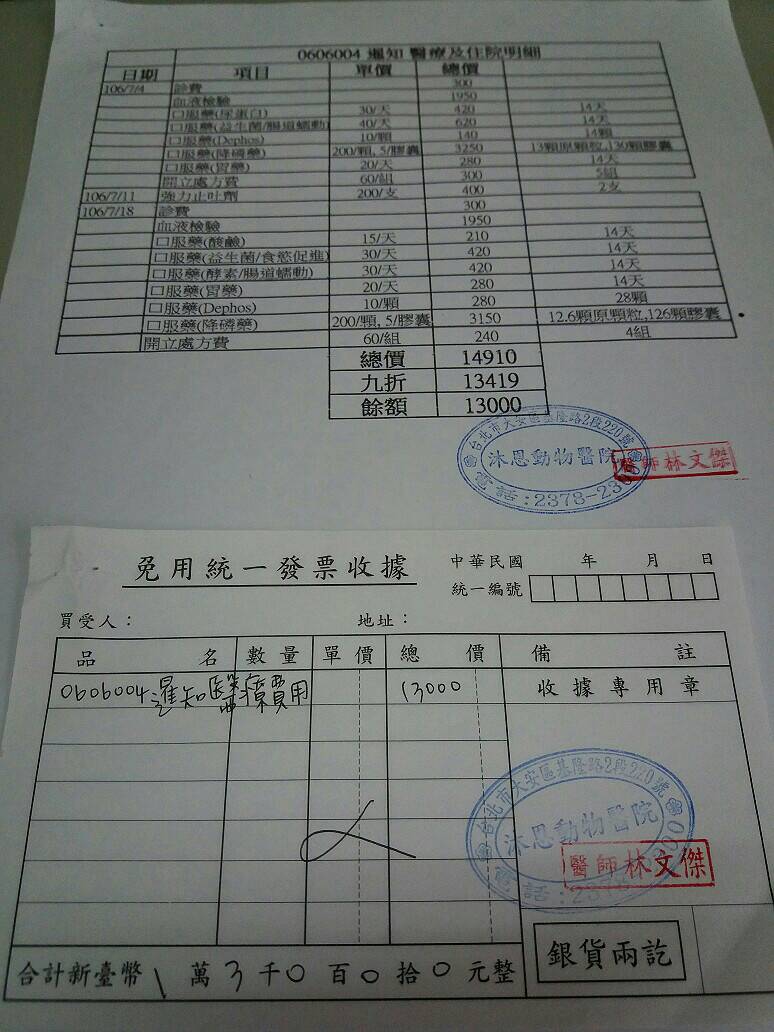 0606004 暹知 醫療及住院明細
日期 項目 單價 總價
106/7/4 診費 300
血液檢驗 1950
口服藥(尿蛋白) 30/天 420 14天
口服藥(益生菌/腸道蠕動) 40/天 620 14天
口服藥(Dephos) 10/顆 140 14顆
口服藥(降磷藥) 200/顆, 5/膠囊 3250 13顆原顆粒,130顆膠囊
口服藥(胃藥) 20/天 280 14天
開立處方費 60/組 300 5組
106/7/11 強力止吐劑 200/支 400 2支
106/7/18 診費 300
血液檢驗 1950
口服藥(酸鹼) 15/天 210 14天
口服藥(益生菌/食慾促進) 30/天 420 14天
口服藥(酵素/腸道蠕動) 30/天 420 14天
口服藥(胃藥) 20/天 280 14天
口服藥(Dephos) 10/顆 280 28顆
口服藥(降磷藥) 200/顆, 5/膠囊 3150 12.6顆原顆粒,126顆膠囊
開立處方費 60/組 240 4組
總價 14910
九折 13419
餘額 13000
台北市大安區基隆路2段220號
沐恩動物醫院
電話:2378-23
醫師林文傑
免用統一發票收據
中華民國 年 月 日
統一編號
買受人: 地址:
品名 數量 單價 總價 備註
0606004暹知醫療費用 13000 收據專用章
台北市大安區基隆路2段220號
沐恩動物醫院
電話:23
醫師林文傑
合計新臺幣 1 萬 3 千 0 百 0 拾 0 元整
銀貨兩訖